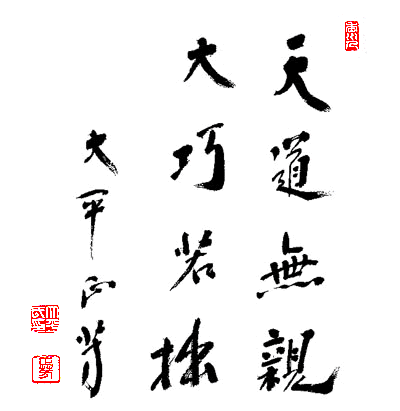 天道無親
大巧若拙
大平正芳